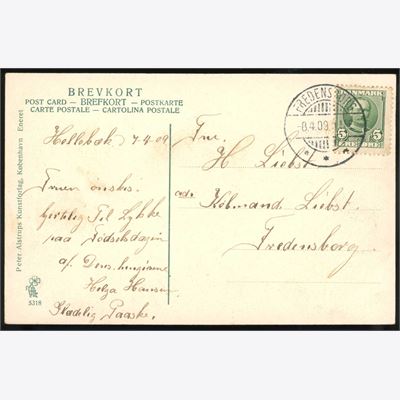 BREVKORT
POST CARD — BREFKORT — POSTKARTE
CARTE POSTALE — CARTOLINA POSTALE
FREDENSBORG
8.4.09
DANMARK
5 5
Hellebæk 7-4-09
Fruen ønskes
hjertelig Til Lykke
paa Fødselsdagen
af Deres hengivne
Helga Hansen
Glædelig Paaske.
Fru
H Liebst
adr. Kobmand Liebst.
Fredensborg.
Peter Alstrups Kunstforlag, København Eneret
5318